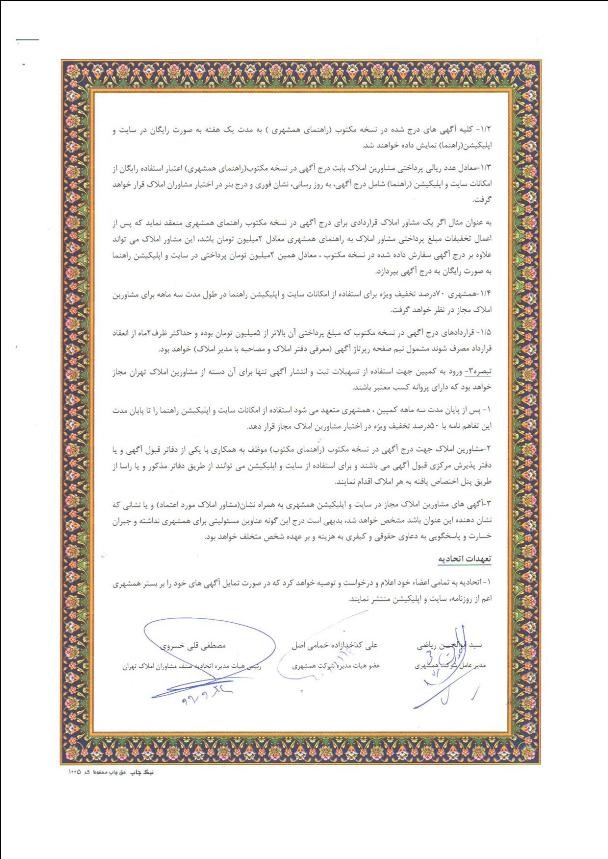 ۱/۲- کلیه آگهی های درج شده در نسخه مکتوب (راهنمای همشهری ) به مدت یک هفته به صورت رایگان در سایت و
اپلیکیشن(راهنما) نمایش داده خواهند شد.
۱/۳-معادل عدد ریالی پرداختی مشاورین املاک بابت درج آگهی در نسخه مکتوب(راهنمای همشهری) اعتبار استفاده رایگان از
امکانات سایت و اپلیکیشن (راهنما) شامل درج آگهی، به روز رسانی، نشان فوری و درج بنر در اختیار مشاوران املاک قرار خواهد
گرفت.
به عنوان مثال اگر یک مشاور املاک قراردادی برای درج آگهی در نسخه مکتوب راهنمای همشهری منعقد نماید که پس از
اعمال تخفیفات مبلغ پرداختی مشاور املاک به راهنمای همشهری معادل ۲میلیون تومان باشد، این مشاور املاک می تواند
علاوه بر درج آگهی سفارش داده شده در نسخه مکتوب ، معادل همین ۲میلیون تومان پرداختی در سایت و اپلیکیشن راهنما
به صورت رایگان به درج آگهی بپردازد.
۱/۴-همشهری ۷۰درصد تخفیف ویژه برای استفاده از امکانات سایت و اپلیکیشن راهنما در طول مدت سه ماهه برای مشاورین
املاک مجاز در نظر خواهد گرفت.
۱/۵- قراردادهای درج آگهی در نسخه مکتوب که مبلغ پرداختی آن بالاتر از ۵میلیون تومان بوده و حداکثر ظرف۲ماه از انعقاد
قرارداد مصرف شوند مشمول نیم صفحه رپرتاژ آگهی (معرفی دفتر املاک و مصاحبه با مدیر املاک) خواهد بود.
تبصره۳- ورود به کمپین جهت استفاده از تسهیلات ثبت و انتشار آگهی تنها برای آن دسته از مشاورین املاک تهران مجاز
خواهد بود که دارای پروانه کسب معتبر باشند.
۱- پس از پایان مدت سه ماهه کمپین ، همشهری متعهد می شود استفاده از امکانات سایت و اپلیکیشن راهنما را تا پایان مدت
این تفاهم نامه با ۵۰درصد تخفیف ویژه در اختیار مشاورین املاک مجاز قرار دهد.
۲-مشاورین املاک جهت درج آگهی در نسخه مکتوب (راهنمای مکتوب) موظف به همکاری با یکی از دفاتر قبول آگهی و یا
دفتر پذیرش مرکزی قبول آگهی می باشند و برای استفاده از سایت و اپلیکیشن می توانند از طریق دفاتر مذکور و یا راسا از
طریق پنل اختصاص یافته به هر املاک اقدام نمایند.
۳-آگهی های مشاورین املاک مجاز در سایت و اپلیکیشن همشهری به همراه نشان(مشاور املاک مورد اعتماد) و یا نشانی که
نشان دهنده این عنوان باشد مشخص خواهد شد، بدیهی است درج این گونه عناوین مسئولیتی برای همشهری نداشته و جبران
خسارت و پاسخگویی به دعاوی حقوقی و کیفری به هزینه و بر عهده شخص متخلف خواهد بود.
تعهدات اتحادیه
۱- اتحادیه به تمامی اعضاء خود اعلام و درخواست و توصیه خواهد کرد که در صورت تمایل آگهی های خود را بر بستر همشهری
اعم از روزنامه، سایت و اپلیکیشن منتشر نمایند.
سید ابوالحسن ریاضی علی کدخدازاده خمامی اصل مصطفی قلی خسروی
مدیرعامل شرکت همشهری عضو هیات مدیره شرکت همشهری رئیس هیات مدیره اتحادیه صنف مشاوران املاک تهران
نیک چاپ حق چاپ محفوظ کد ۱۰۰۵